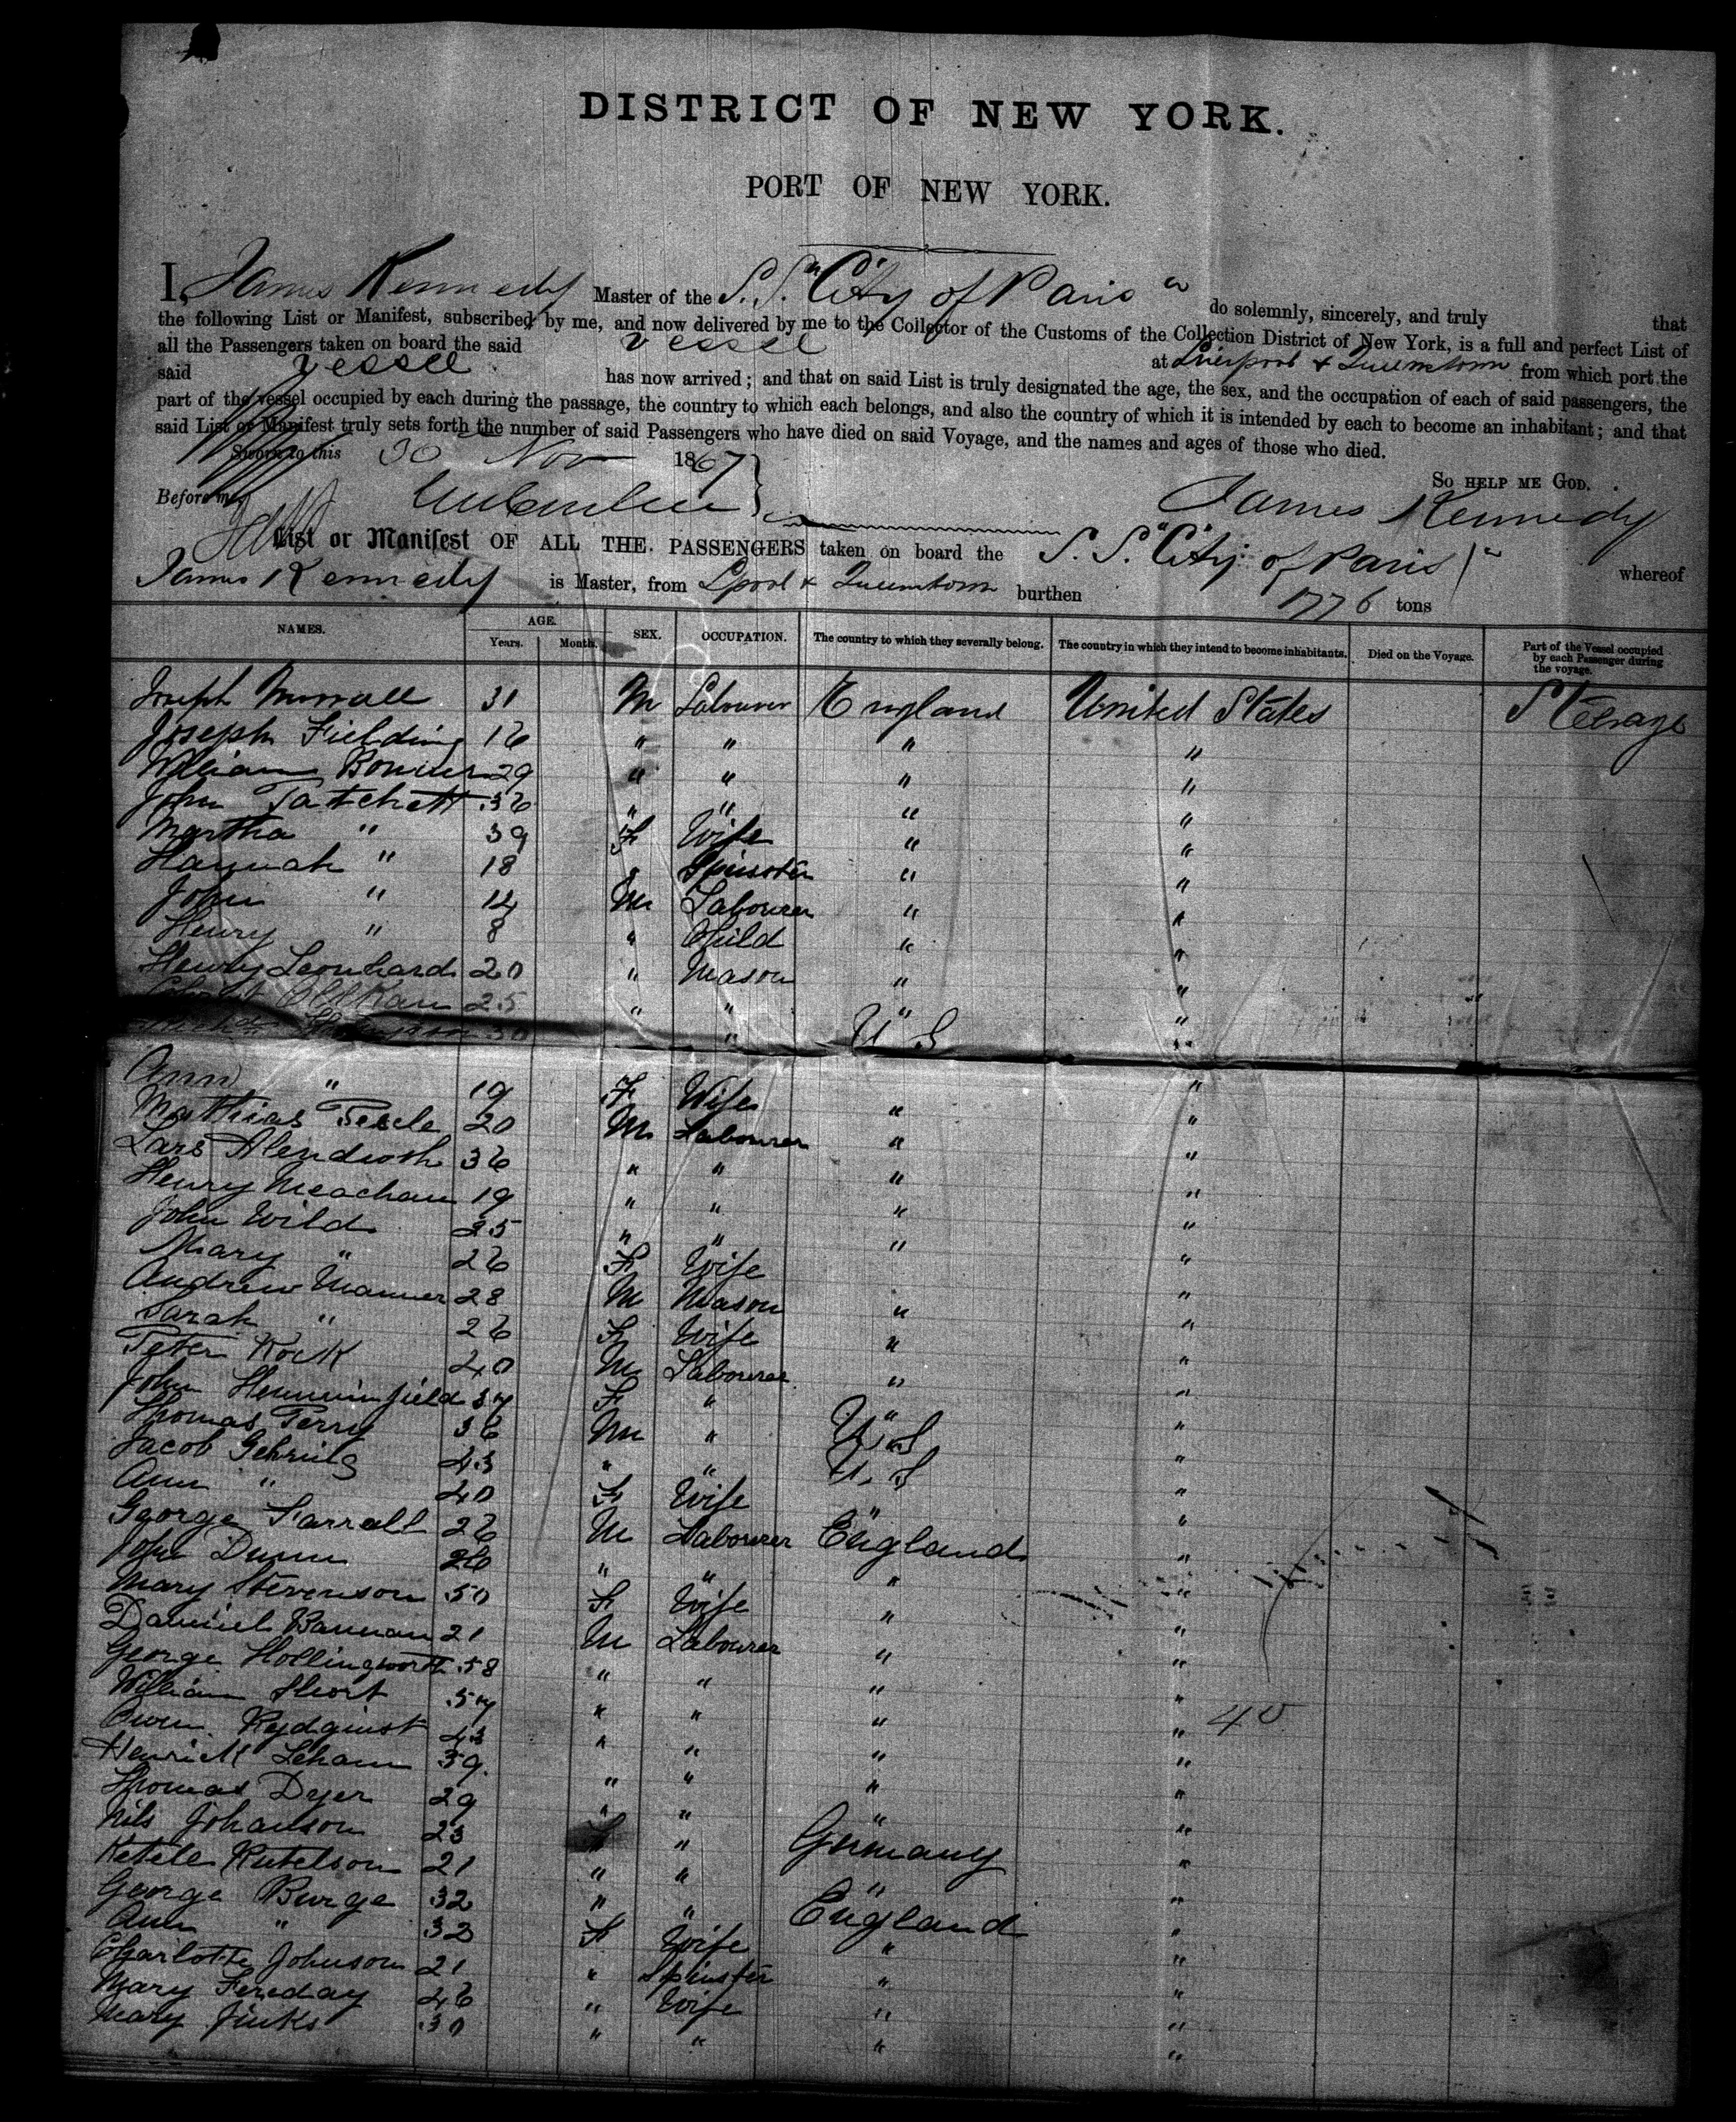 DISTRICT OF NEW YORK.
PORT OF NEW YORK.
I, James Kennedy Master of the S.S. "City of Paris" do solemnly, sincerely, and truly that
the following List or Manifest, subscribed by me, and now delivered by me to the Collector of the Customs of the Collection District of New York, is a full and perfect List of
all the Passengers taken on board the said vessel at Liverpool & Queenstown from which port the
said vessel has now arrived; and that on said List is truly designated the age, the sex, and the occupation of each of said passengers, the
part of the vessel occupied by each during the passage, the country to which each belongs, and also the country of which it is intended by each to become an inhabitant; and that
said List or Manifest truly sets forth the number of said Passengers who have died on said Voyage, and the names and ages of those who died.
Sworn to this 30 Nov 1867
So HELP ME GOD.
Before me, James Kennedy
List or Manifest OF ALL THE PASSENGERS taken on board the S.S. "City of Paris" whereof
James Kennedy is Master, from Lpool & Queenstown burthen 1776 tons
NAMES. AGE. Years. Month. SEX. OCCUPATION. The country to which they severally belong. The country in which they intend to become inhabitants. Died on the Voyage. Part of the Vessel occupied by each Passenger during the voyage.
Joseph 31 M Labourer England United States Steerage
Joseph Fielding 16 " " " "
William 29 " " " "
John Tatchett 36 " " " "
Martha " 39 F Wife " "
Hannah " 18 " Spinster " "
John " 14 M Labourer " "
Henry " 8 " Child " "
Henry Leonhard 20 " Mason " "
25 " " " "
30 " U S "
Ann " 19 F Wife " "
Matthias 20 M Labourer " "
Lars 36 " " " "
Henry Meacham 19 " " " "
John Wild 25 " " " "
Mary " 26 F Wife "
Andrew Manner 28 M Mason " "
Sarah " 26 F Wife " "
Peter Kock 40 M Labourer " "
John Henninfield 37 F " " "
Thomas Perry 36 M " U.S "
Jacob Gehring 43 " " U.S "
Ann " 40 F Wife " "
George Farrall 26 M Labourer England "
John Dunn 26 " " " "
Mary Stevenson 50 F Wife " "
Daniel Bauman 21 M Labourer " "
George Hollingworth 58 " " " "
William Short 57 " " " " 40
Owen Rydquist 43 " " " "
Henrick Leham 39 " " " "
Thomas Dyer 29 " " " "
Nils Johanson 23 " Germany "
Ketele Ketelson 21 " " " "
George Burge 32 " " England "
Ann " 32 F Wife " "
Charlotte Johnson 21 " Spinster " "
Mary Fereday 46 " Wife " "
Mary Jinks 30 " " " "